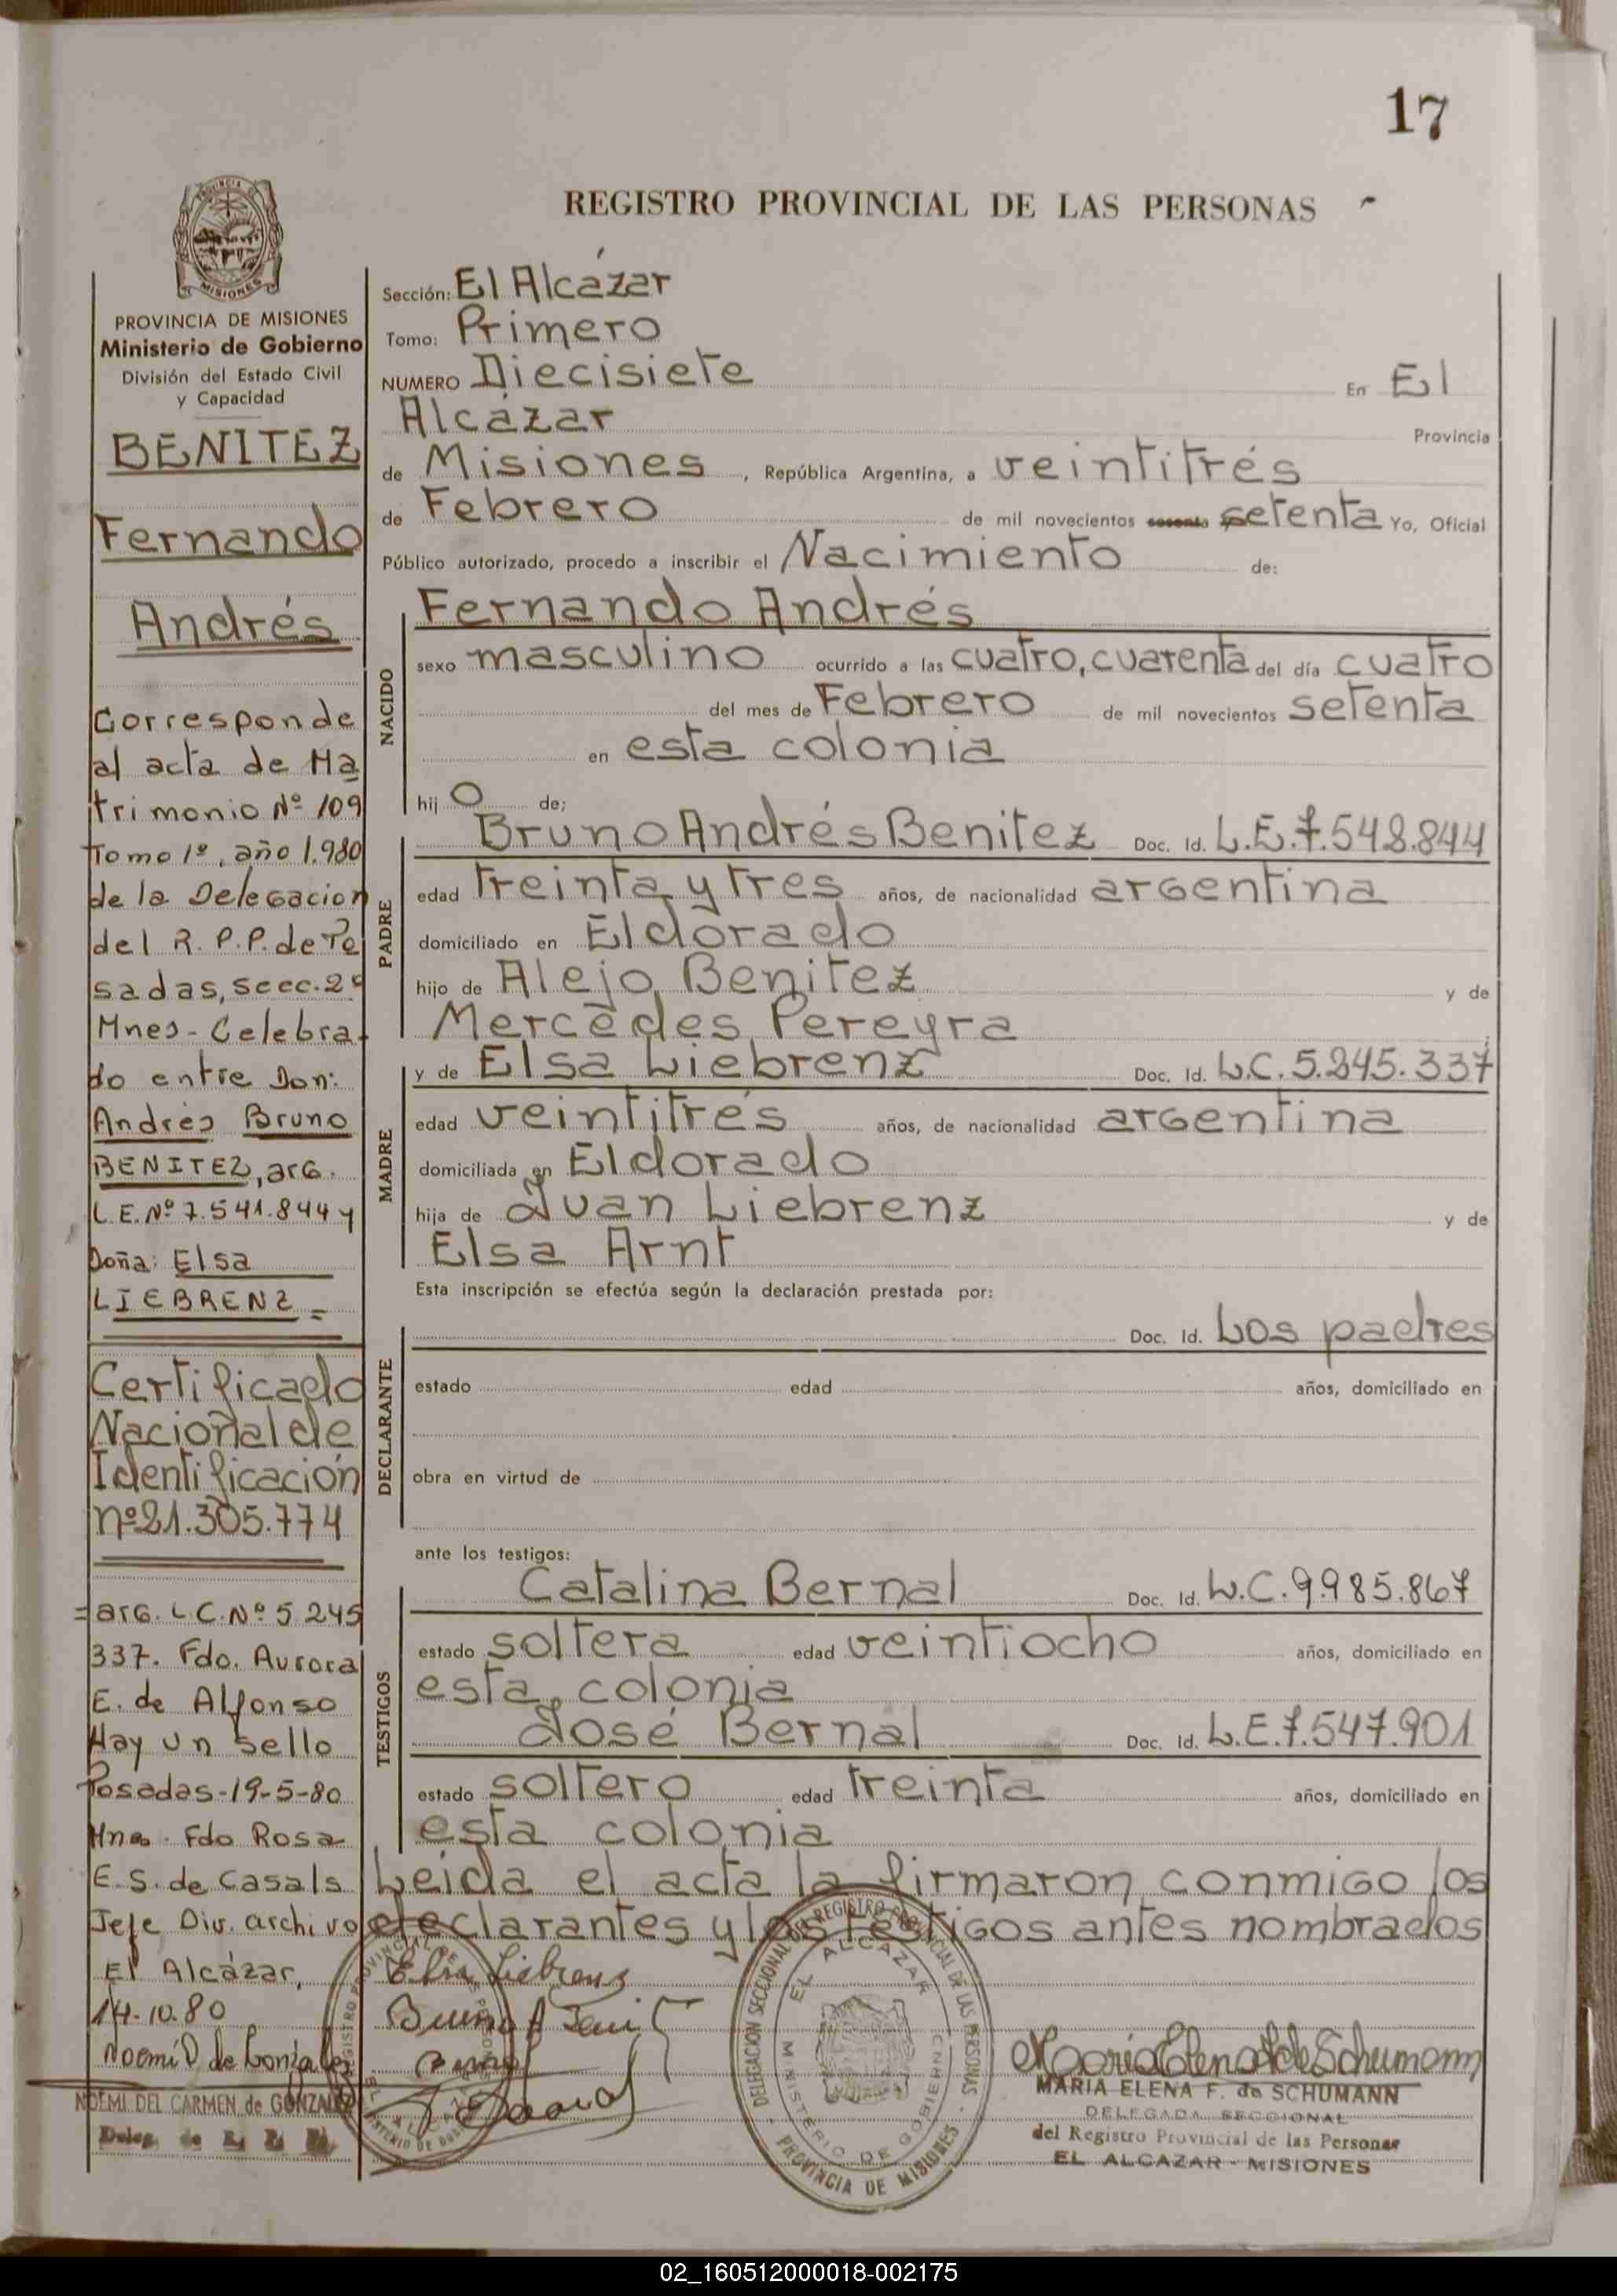 17
REGISTRO PROVINCIAL DE LAS PERSONAS
PROVINCIA DE
MISIONES
PROVINCIA DE MISIONES
Ministerio de Gobierno
División del Estado Civil
y Capacidad
BENITEZ
Fernando
Andrés
Corresponde
al acta de Ma
trimonio Nº 109
Tomo 1º, año 1.980
de la Delegacion
del R. P. P. de Po
sadas, secc. 2º
Mnes - Celebra-
do entre Don:
Andrés Bruno
BENITEZ, arG.
L.E. Nº 7.541.844 y
Doña: Elsa
LIEBRENZ =
Certificado
Nacional de
Identificación
nº 21.305.774
= arG. L.C. Nº 5.245
337. Fdo. Aurora
E. de Alfonso
Hay un sello
Posadas - 19-5-80
Mnes. Fdo Rosa
E. S. de Casals
Jefe Div. archivo
El Alcázar,
14-10-80
Noemí D de Gonzalez
NOEMI DEL CARMEN de GONZALEZ
Sección: El Alcázar
Tomo: Primero
NUMERO Diecisiete En El
Alcázar Provincia
de Misiones, República Argentina, a veintitrés
de Febrero de mil novecientos sesenta setenta Yo, Oficial
Público autorizado, procedo a inscribir el Nacimiento de:
NACIDO
Fernando Andrés
sexo masculino ocurrido a las cuatro, cuarenta del día cuatro
del mes de Febrero de mil novecientos setenta
en esta colonia
hijo de;
PADRE
Bruno Andrés Benitez Doc. Id. L.E. 7.548.844
edad treinta y tres años, de nacionalidad arGentina
domiciliado en Eldorado
hijo de Alejo Benitez y de
Mercedes Pereyra
MADRE
y de Elsa Liebrenz Doc. Id. L.C. 5.245.337
edad veintitrés años, de nacionalidad arGentina
domiciliada en Eldorado
hija de Juan Liebrenz y de
Elsa Arnt
Esta inscripción se efectúa según la declaración prestada por:
DECLARANTE
Doc. Id. Los padres
estado edad años, domiciliado en
obra en virtud de
ante los testigos:
TESTIGOS
Catalina Bernal Doc. Id. L.C. 9.985.867
estado soltera edad veintiocho años, domiciliado en
esta colonia
José Bernal Doc. Id. L.E. 7.547.901
estado soltero edad treinta años, domiciliado en
esta colonia
Leída el acta la firmaron conmiGo los
declarantes y los testiGos antes nombrados
Elsa Liebrenz
DELEGACION SECCIONAL DEL REGISTRO PROVINCIAL DE LAS PERSONAS
EL ALCAZAR
MINISTERIO DE GOBIERNO
PROVINCIA DE MISIONES
María Elena F de Schumann
MARIA ELENA F. de SCHUMANN
DELEGADA SECCIONAL
del Registro Provincial de las Personas
EL ALCAZAR - MISIONES
02_160512000018-002175